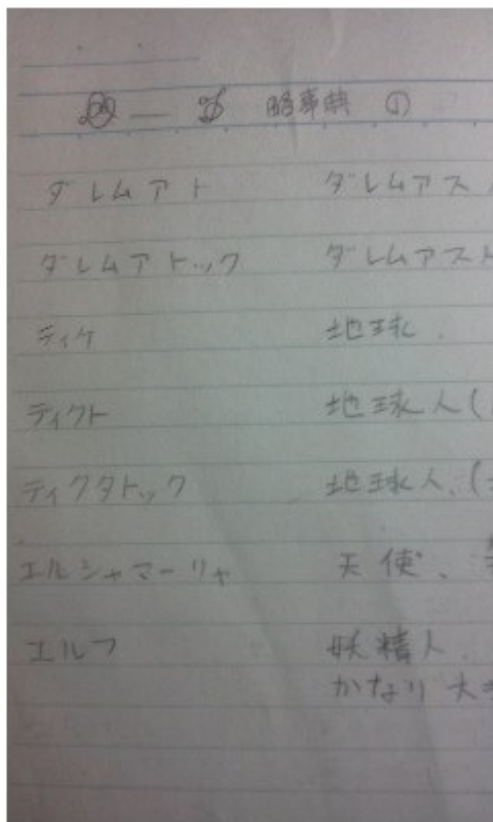 略事典 ①
ダレムアト ダレムアス
ダレムアトック ダレムアスト
ティケ 地球.
ティクト 地球人(
ティクタトック 地球人、(
エルシャマーリャ 天使、
エルフ 妖精人.
かなり大